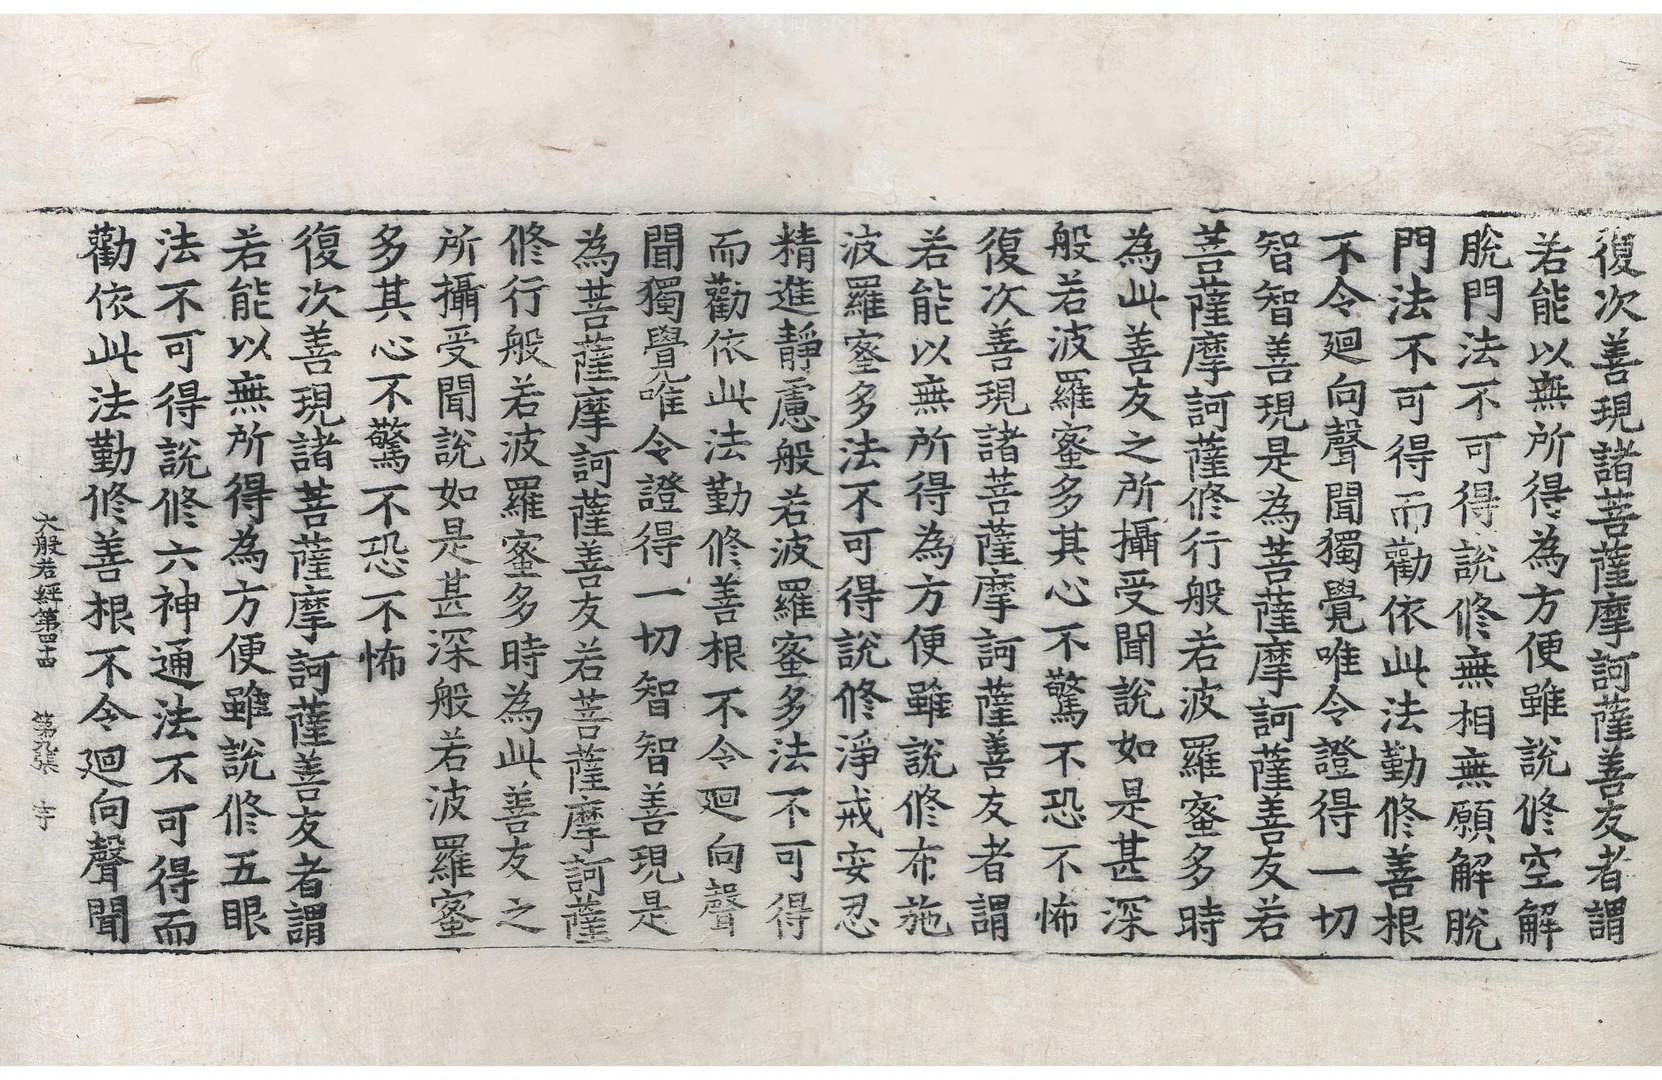 復次善現諸菩薩摩訶薩善友者謂
若能以無所得為方便雖說修空解
脫門法不可得說修無相無願解脫
門法不可得而勸依此法勤修善根
不令迴向聲聞獨覺唯令證得一切
智智善現是為菩薩摩訶薩善友若
菩薩摩訶薩修行般若波羅蜜多時
為此善友之所攝受聞說如是甚深
般若波羅蜜多其心不驚不恐不怖
復次善現諸菩薩摩訶薩善友者謂
若能以無所得為方便雖說修布施
波羅蜜多法不可得說修淨戒安忍
精進靜慮般若波羅蜜多法不可得
而勸依此法勤修善根不令迴向聲
聞獨覺唯令證得一切智智善現是
為菩薩摩訶薩善友若菩薩摩訶薩
修行般若波羅蜜多時為此善友之
所攝受聞說如是甚深般若波羅蜜
多其心不驚不恐不怖
復次善現諸菩薩摩訶薩善友者謂
若能以無所得為方便雖說修五眼
法不可得說修六神通法不可得而
勸依此法勤修善根不令迴向聲聞
大般若經第四十四 第張 宇